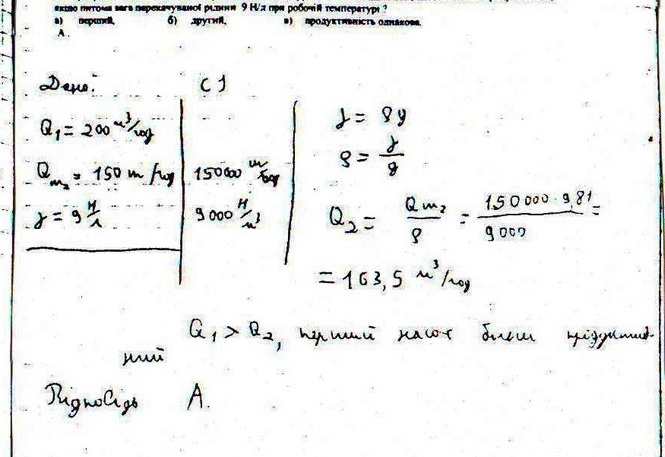 якщо питома вага перекачуваної рідини 9 Н/л при робочій температурі ?
а) перший, б) другий, в) продуктивність однакова.
А.
Дано: СІ
Q₁ = 200 м³/год
Qm₂ = 150 т/год 150000
γ = 9 Н/л 9000 Н/м³
γ = ρg
ρ = γ/g
Q₂ = Qm₂/ρ = 150000·9,81/9000 =
= 163,5 м³/год
Q₁ > Q₂, перший насос більш продуктив-
ний
Відповідь А.